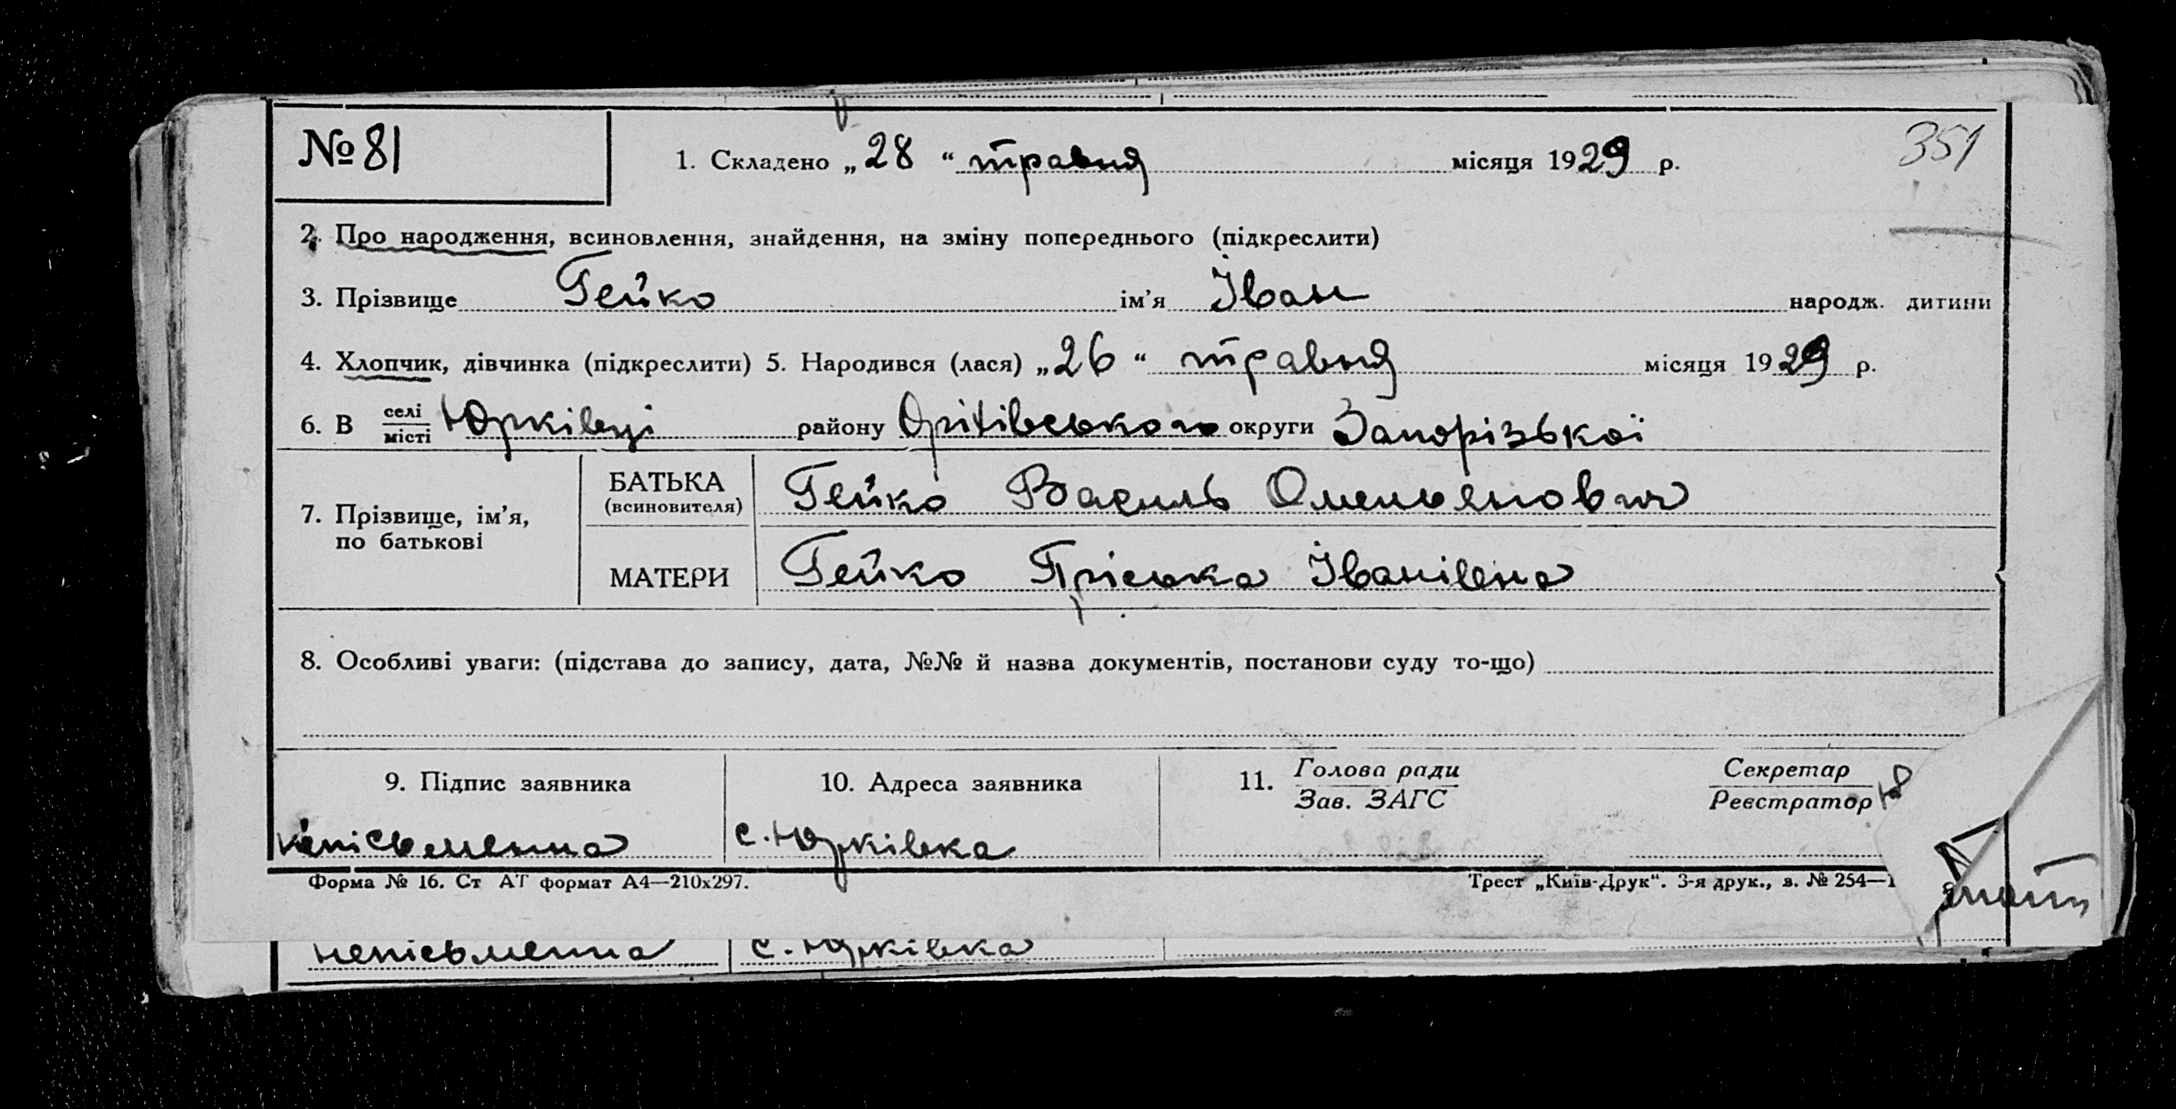 № 81
1. Складено „28“ травня місяця 1929 р.
351
2. Про народження, всиновлення, знайдення, на зміну попереднього (підкреслити)
3. Прізвище Гейко ім'я Іван народж. дитини
4. Хлопчик, дівчинка (підкреслити) 5. Народився (лася) „26“ травня місяця 1929 р.
6. В селі місті Юрківці району Оріхівського округи Запорізької
7. Прізвище, ім'я, по батькові
БАТЬКА (всиновителя) Гейко Василь Омельянович
МАТЕРИ Гейко Пріська Іванівна
8. Особливі уваги: (підстава до запису, дата, №№ й назва документів, постанови суду то-що)
9. Підпис заявника
10. Адреса заявника
11. Голова ради Зав. ЗАГС
Секретар Реєстратор
непісьменна
с. Юрківка
Форма № 16. Ст АТ формат А4—210х297.
Трест „Київ-Друк“. 3-я друк., з. № 254—1
непісьменна
с. Юрківка